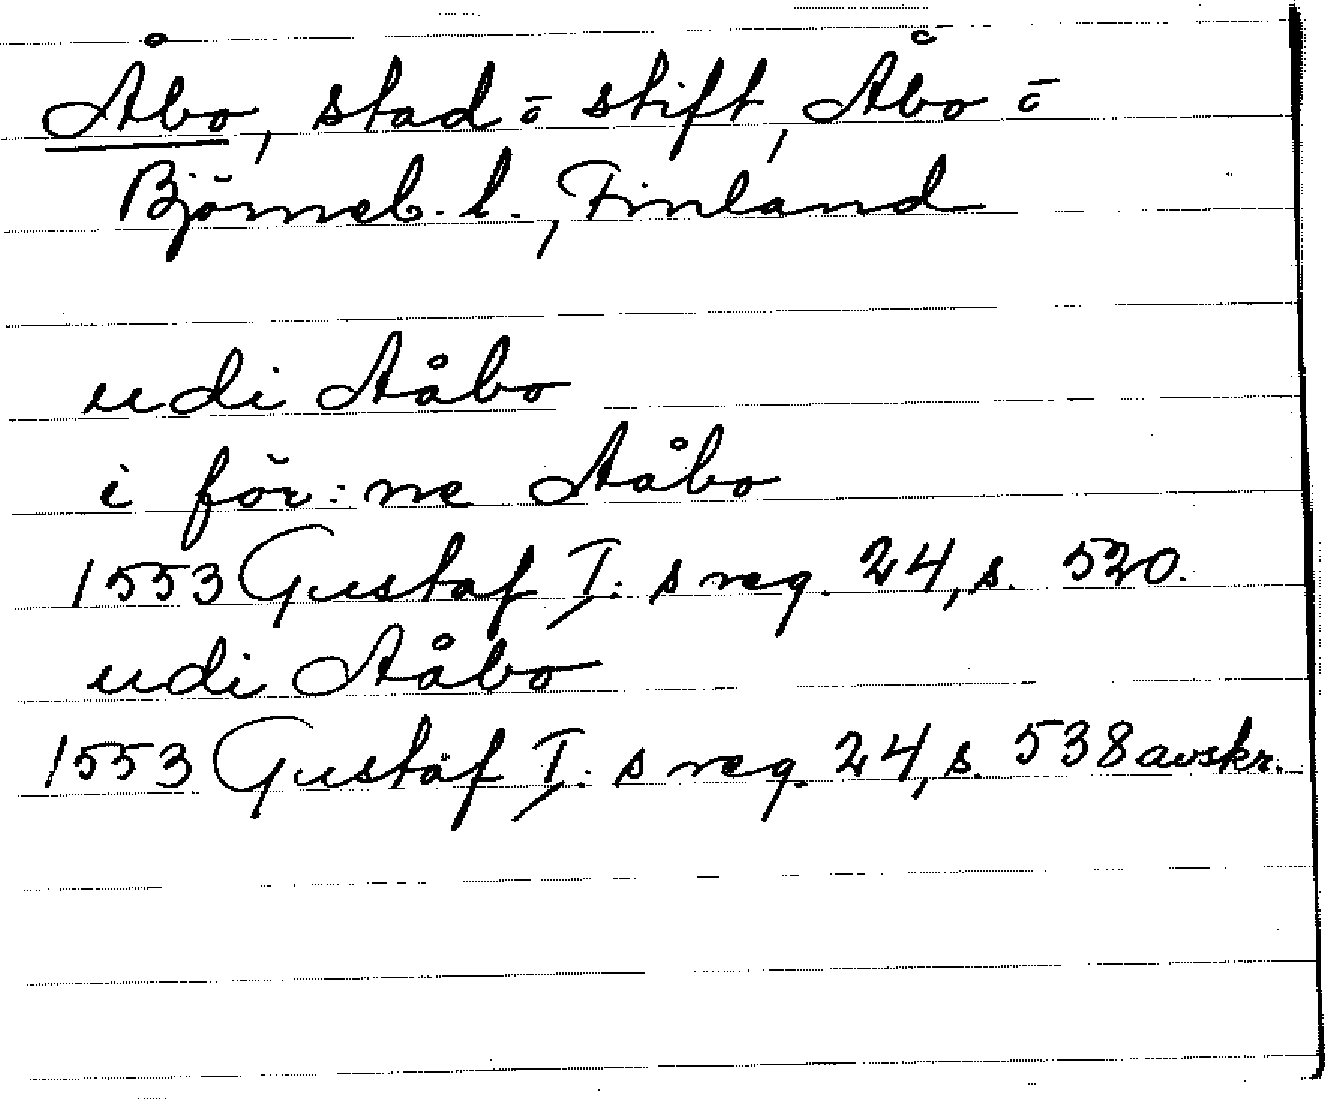 Åbo, stad ō stift, Åbo ō
Björneb. l., Finland
udi Aåbo
i för:ne Aåbo
1553 Gustaf I:s reg. 24, s. 520.
udi Aåbo
1553 Gustaf I:s reg. 24, s. 538 avskr.